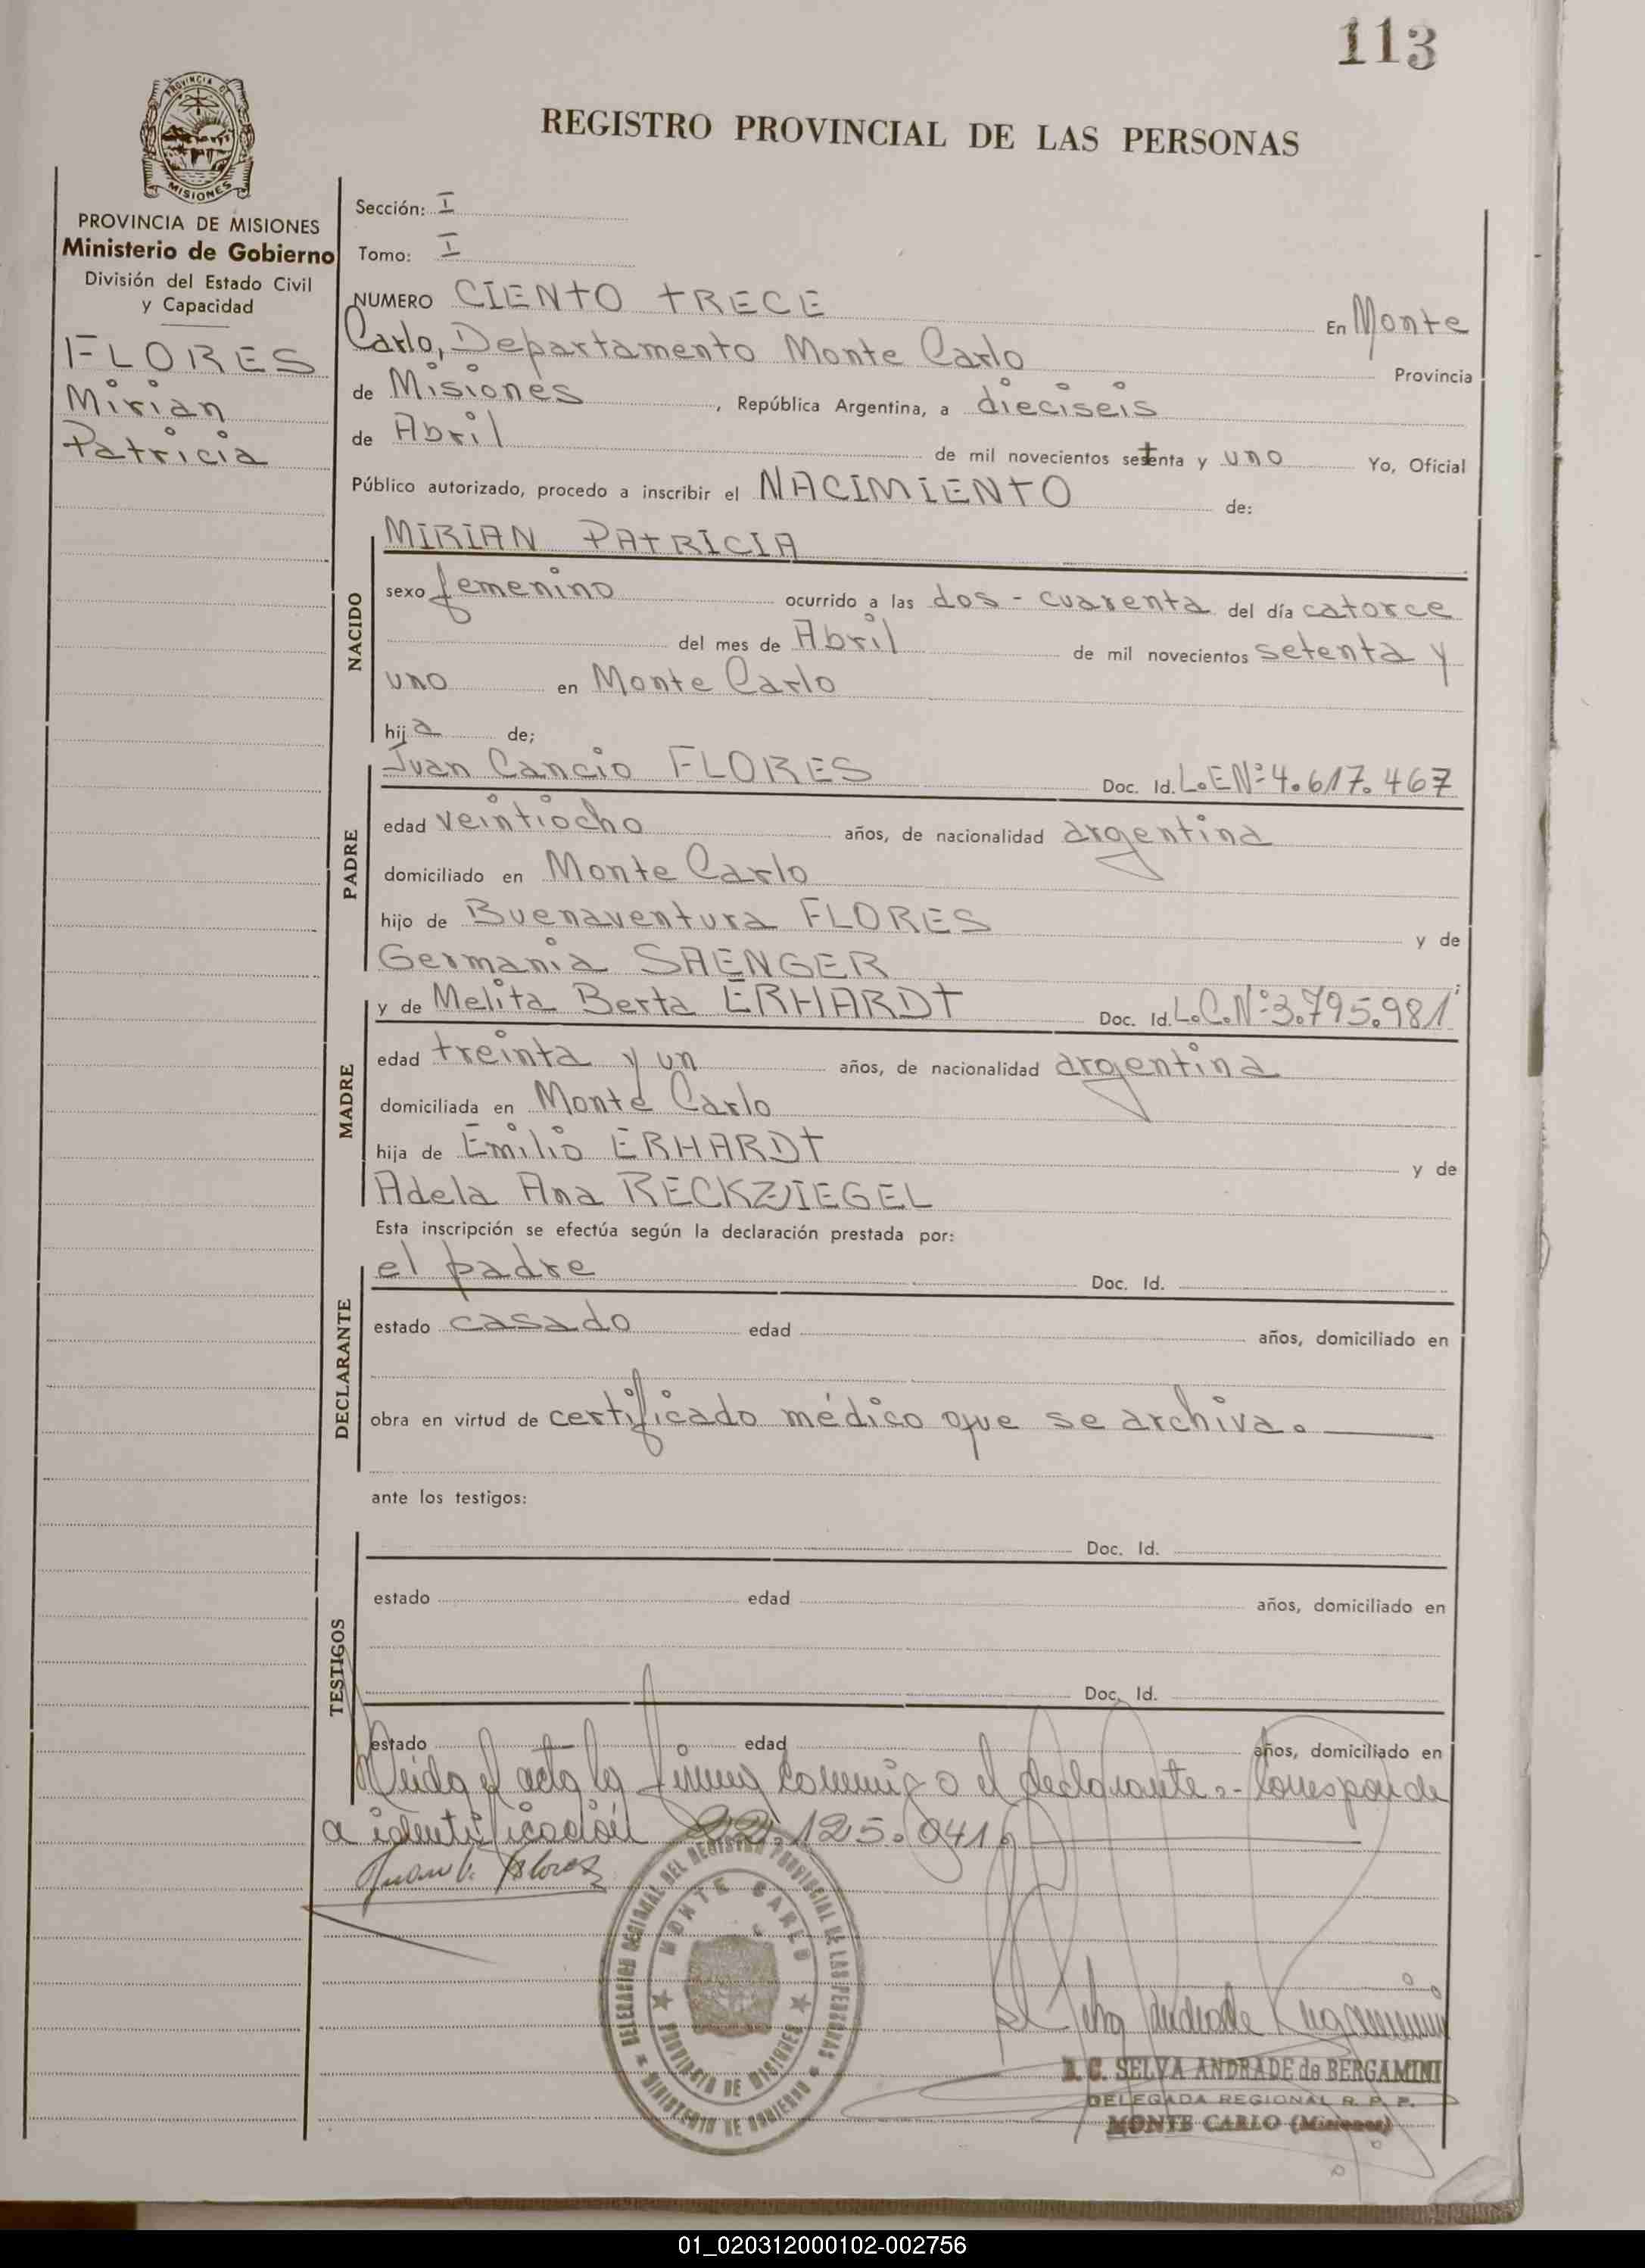 113
REGISTRO PROVINCIAL DE LAS PERSONAS
PROVINCIA DE MISIONES
Ministerio de Gobierno
División del Estado Civil
y Capacidad
FLORES
Mirian
Patricia
Sección: I
Tomo: I
NUMERO CIENTO TRECE En Monte
Carlo, Departamento Monte Carlo Provincia
de Misiones, República Argentina, a dieciseis
de Abril de mil novecientos setenta y uno Yo, Oficial
Público autorizado, procedo a inscribir el NACIMIENTO de:
NACIDO
MIRIAN PATRICIA
sexo femenino ocurrido a las dos - cuarenta del día catorce
del mes de Abril de mil novecientos setenta y
uno en Monte Carlo
hija de;
PADRE
Juan Cancio FLORES Doc. Id. L.E.Nº 4.617.467
edad veintiocho años, de nacionalidad argentina
domiciliado en Monte Carlo
hijo de Buenaventura FLORES y de
Germania SAENGER
MADRE
y de Melita Berta ERHARDT Doc. Id. L.C.Nº 3.795.981
edad treinta y un años, de nacionalidad argentina
domiciliada en Monte Carlo
hija de Emilio ERHARDT y de
Adela Ana RECKZIEGEL
Esta inscripción se efectúa según la declaración prestada por:
DECLARANTE
el padre Doc. Id.
estado casado edad años, domiciliado en
obra en virtud de certificado médico que se archiva.
ante los testigos:
TESTIGOS
Doc. Id.
estado edad años, domiciliado en
Doc. Id.
estado edad años, domiciliado en
Leida el acta la firma conmigo el declarante.- Corresponde
a identificación 22.125.041.
Juan C. Flores
DELEGACION REGIONAL DEL REGISTRO PROVINCIAL DE LAS PERSONAS
MINISTERIO DE GOBIERNO
MONTE CARLO
PROVINCIA DE MISIONES
SELVA ANDRADE de BERGAMINI
DELEGADA REGIONAL R. P. P.
MONTE CARLO (Misiones)
01_020312000102-002756